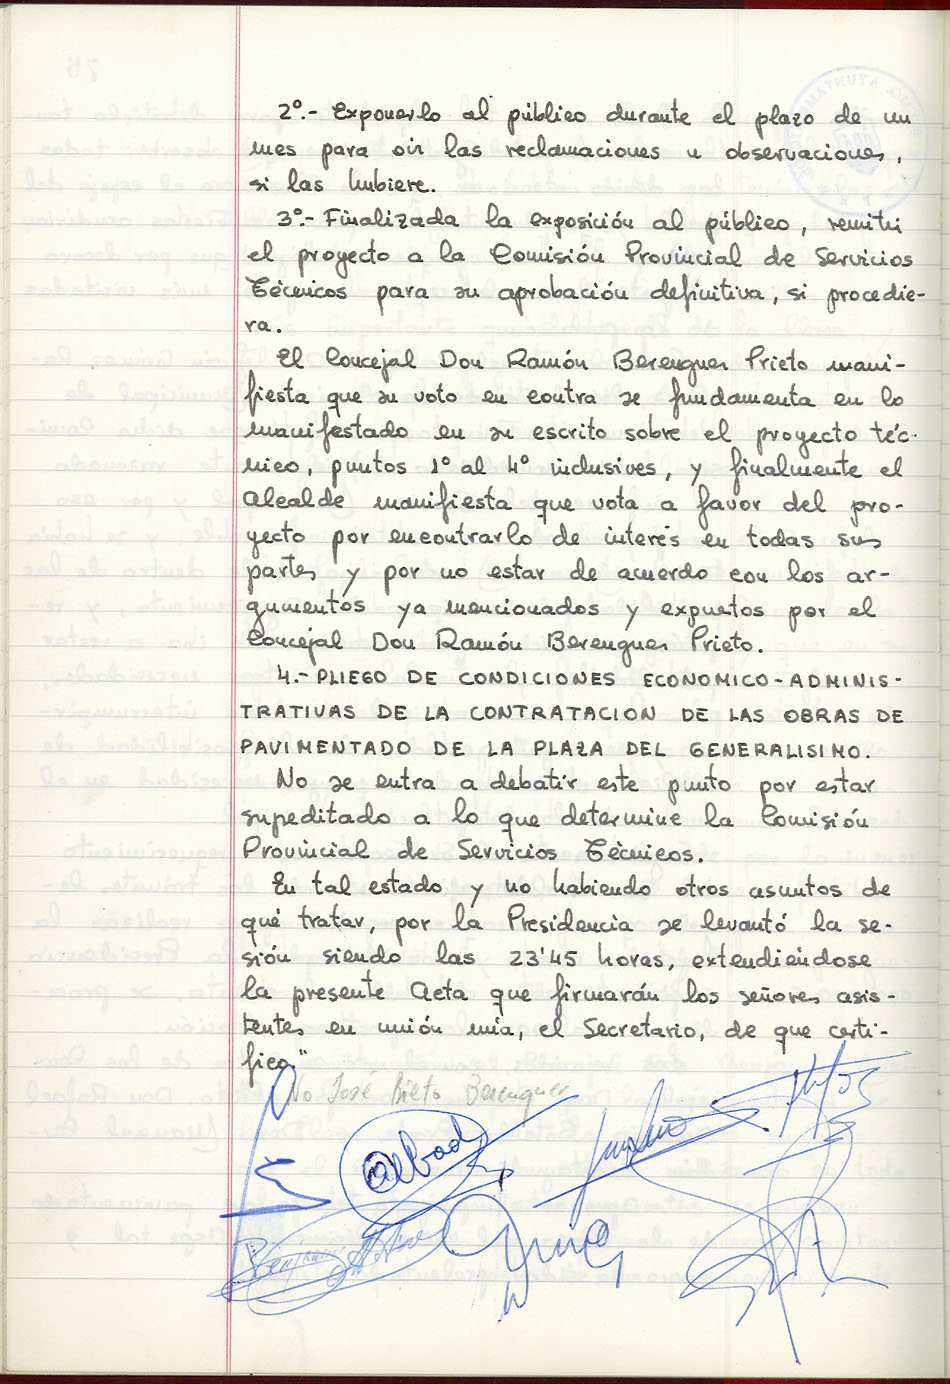 2º.- Exponerlo al público durante el plazo de un
mes para oir las reclamaciones u observaciones,
si las hubiere.
3º.- Finalizada la exposición al público, remitir
el proyecto a la Comisión Provincial de Servicios
Técnicos para su aprobación definitiva, si procedie-
ra.
El Concejal Don Ramón Berenguer Prieto mani-
fiesta que su voto en contra se fundamenta en lo
manifestado en su escrito sobre el proyecto téc-
nico, puntos 1º al 4º inclusives, y finalmente el
Alcalde manifiesta que vota a favor del pro-
yecto por encontrarlo de interés en todas sus
partes y por no estar de acuerdo con los ar-
gumentos ya mencionados y expuetos por el
Concejal Don Ramón Berenguer Prieto.
4.- PLIEGO DE CONDICIONES ECONOMICO-ADMINIS-
TRATIVAS DE LA CONTRATACION DE LAS OBRAS DE
PAVIMENTADO DE LA PLAZA DEL GENERALISIMO.
No se entra a debatir este punto por estar
supeditado a lo que determine la Comisión
Provincial de Servicios Técnicos.
En tal estado y no habiendo otros asuntos de
qué tratar, por la Presidencia se levantó la se-
sión siendo las 23'45 horas, extendiéndose
la presente Acta que firmarán los señores asis-
tentes en unión mía, el Secretario, de que certi-
fico."
No José Prieto Berenguer
Abad